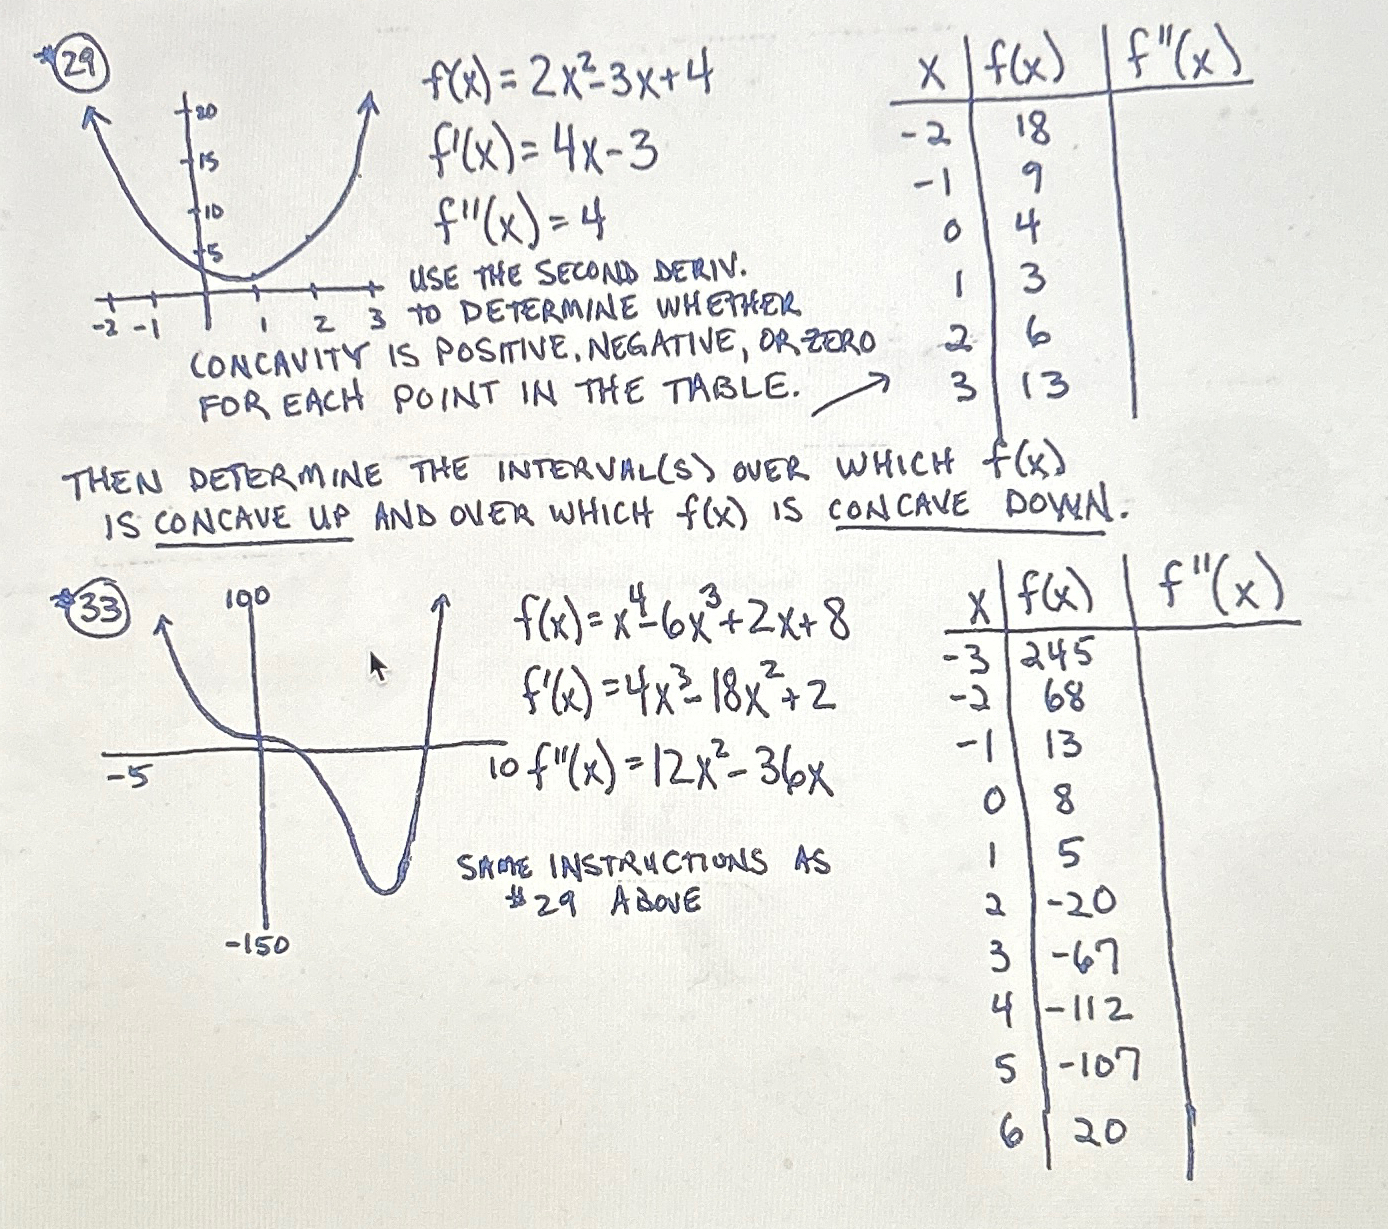 #29
f(x) = 2x²-3x+4
f'(x) = 4x-3
f''(x) = 4
20
15
10
5
-2 -1 1 2 3
USE THE SECOND DERIV.
TO DETERMINE WHETHER
CONCAVITY IS POSITIVE, NEGATIVE, OR ZERO
FOR EACH POINT IN THE TABLE.
x f(x) f''(x)
-2 18
-1 9
0 4
1 3
2 6
3 13
THEN DETERMINE THE INTERVAL(S) OVER WHICH f(x)
IS CONCAVE UP AND OVER WHICH f(x) IS CONCAVE DOWN.
#33
100
-5 10
-150
f(x) = x⁴-6x³+2x+8
f'(x) = 4x³-18x²+2
f''(x) = 12x²-36x
SAME INSTRUCTIONS AS
#29 ABOVE
x f(x) f''(x)
-3 245
-2 68
-1 13
0 8
1 5
2 -20
3 -67
4 -112
5 -107
6 20